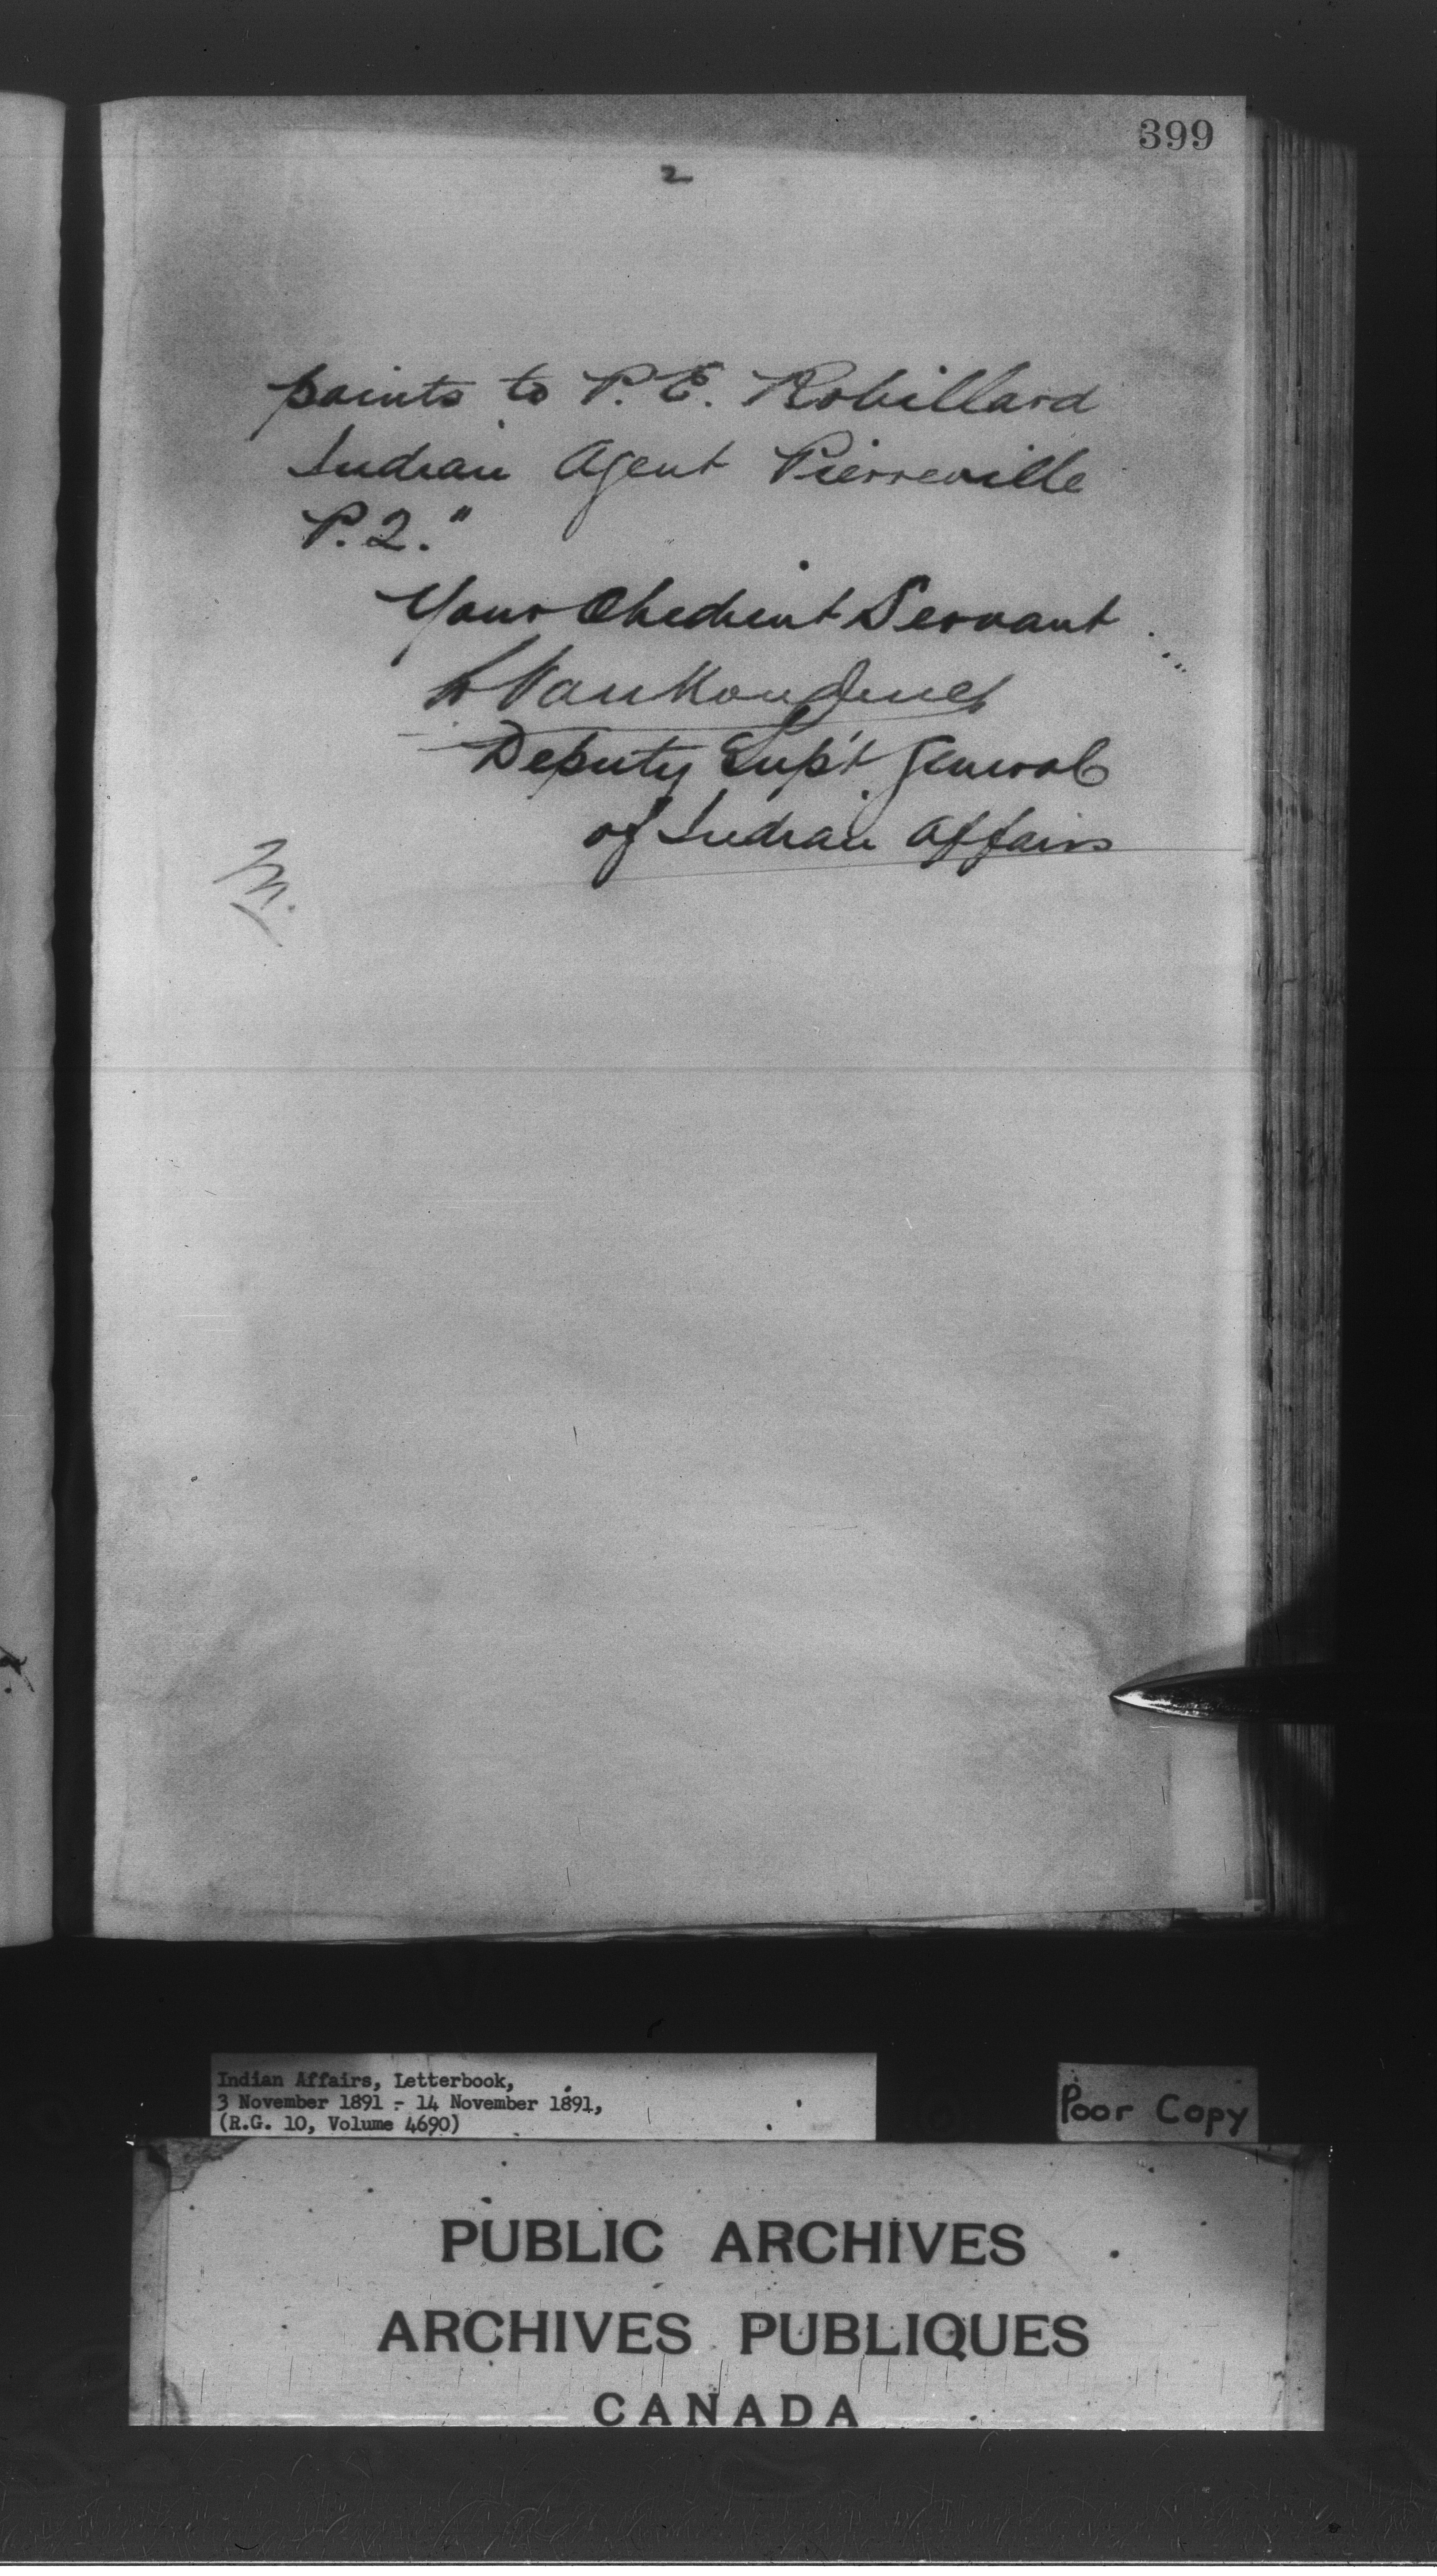 399
2
points to P. E. Robillard
Indian Agent Pierreville
P.Q."
Your Obedient Servant
L Vankoughnet
Deputy Sup't General
of Indian Affairs
Indian Affairs, Letterbook,
3 November 1891 - 14 November 1891,
(R.G. 10, Volume 4690)
Poor Copy
PUBLIC ARCHIVES
ARCHIVES PUBLIQUES
CANADA